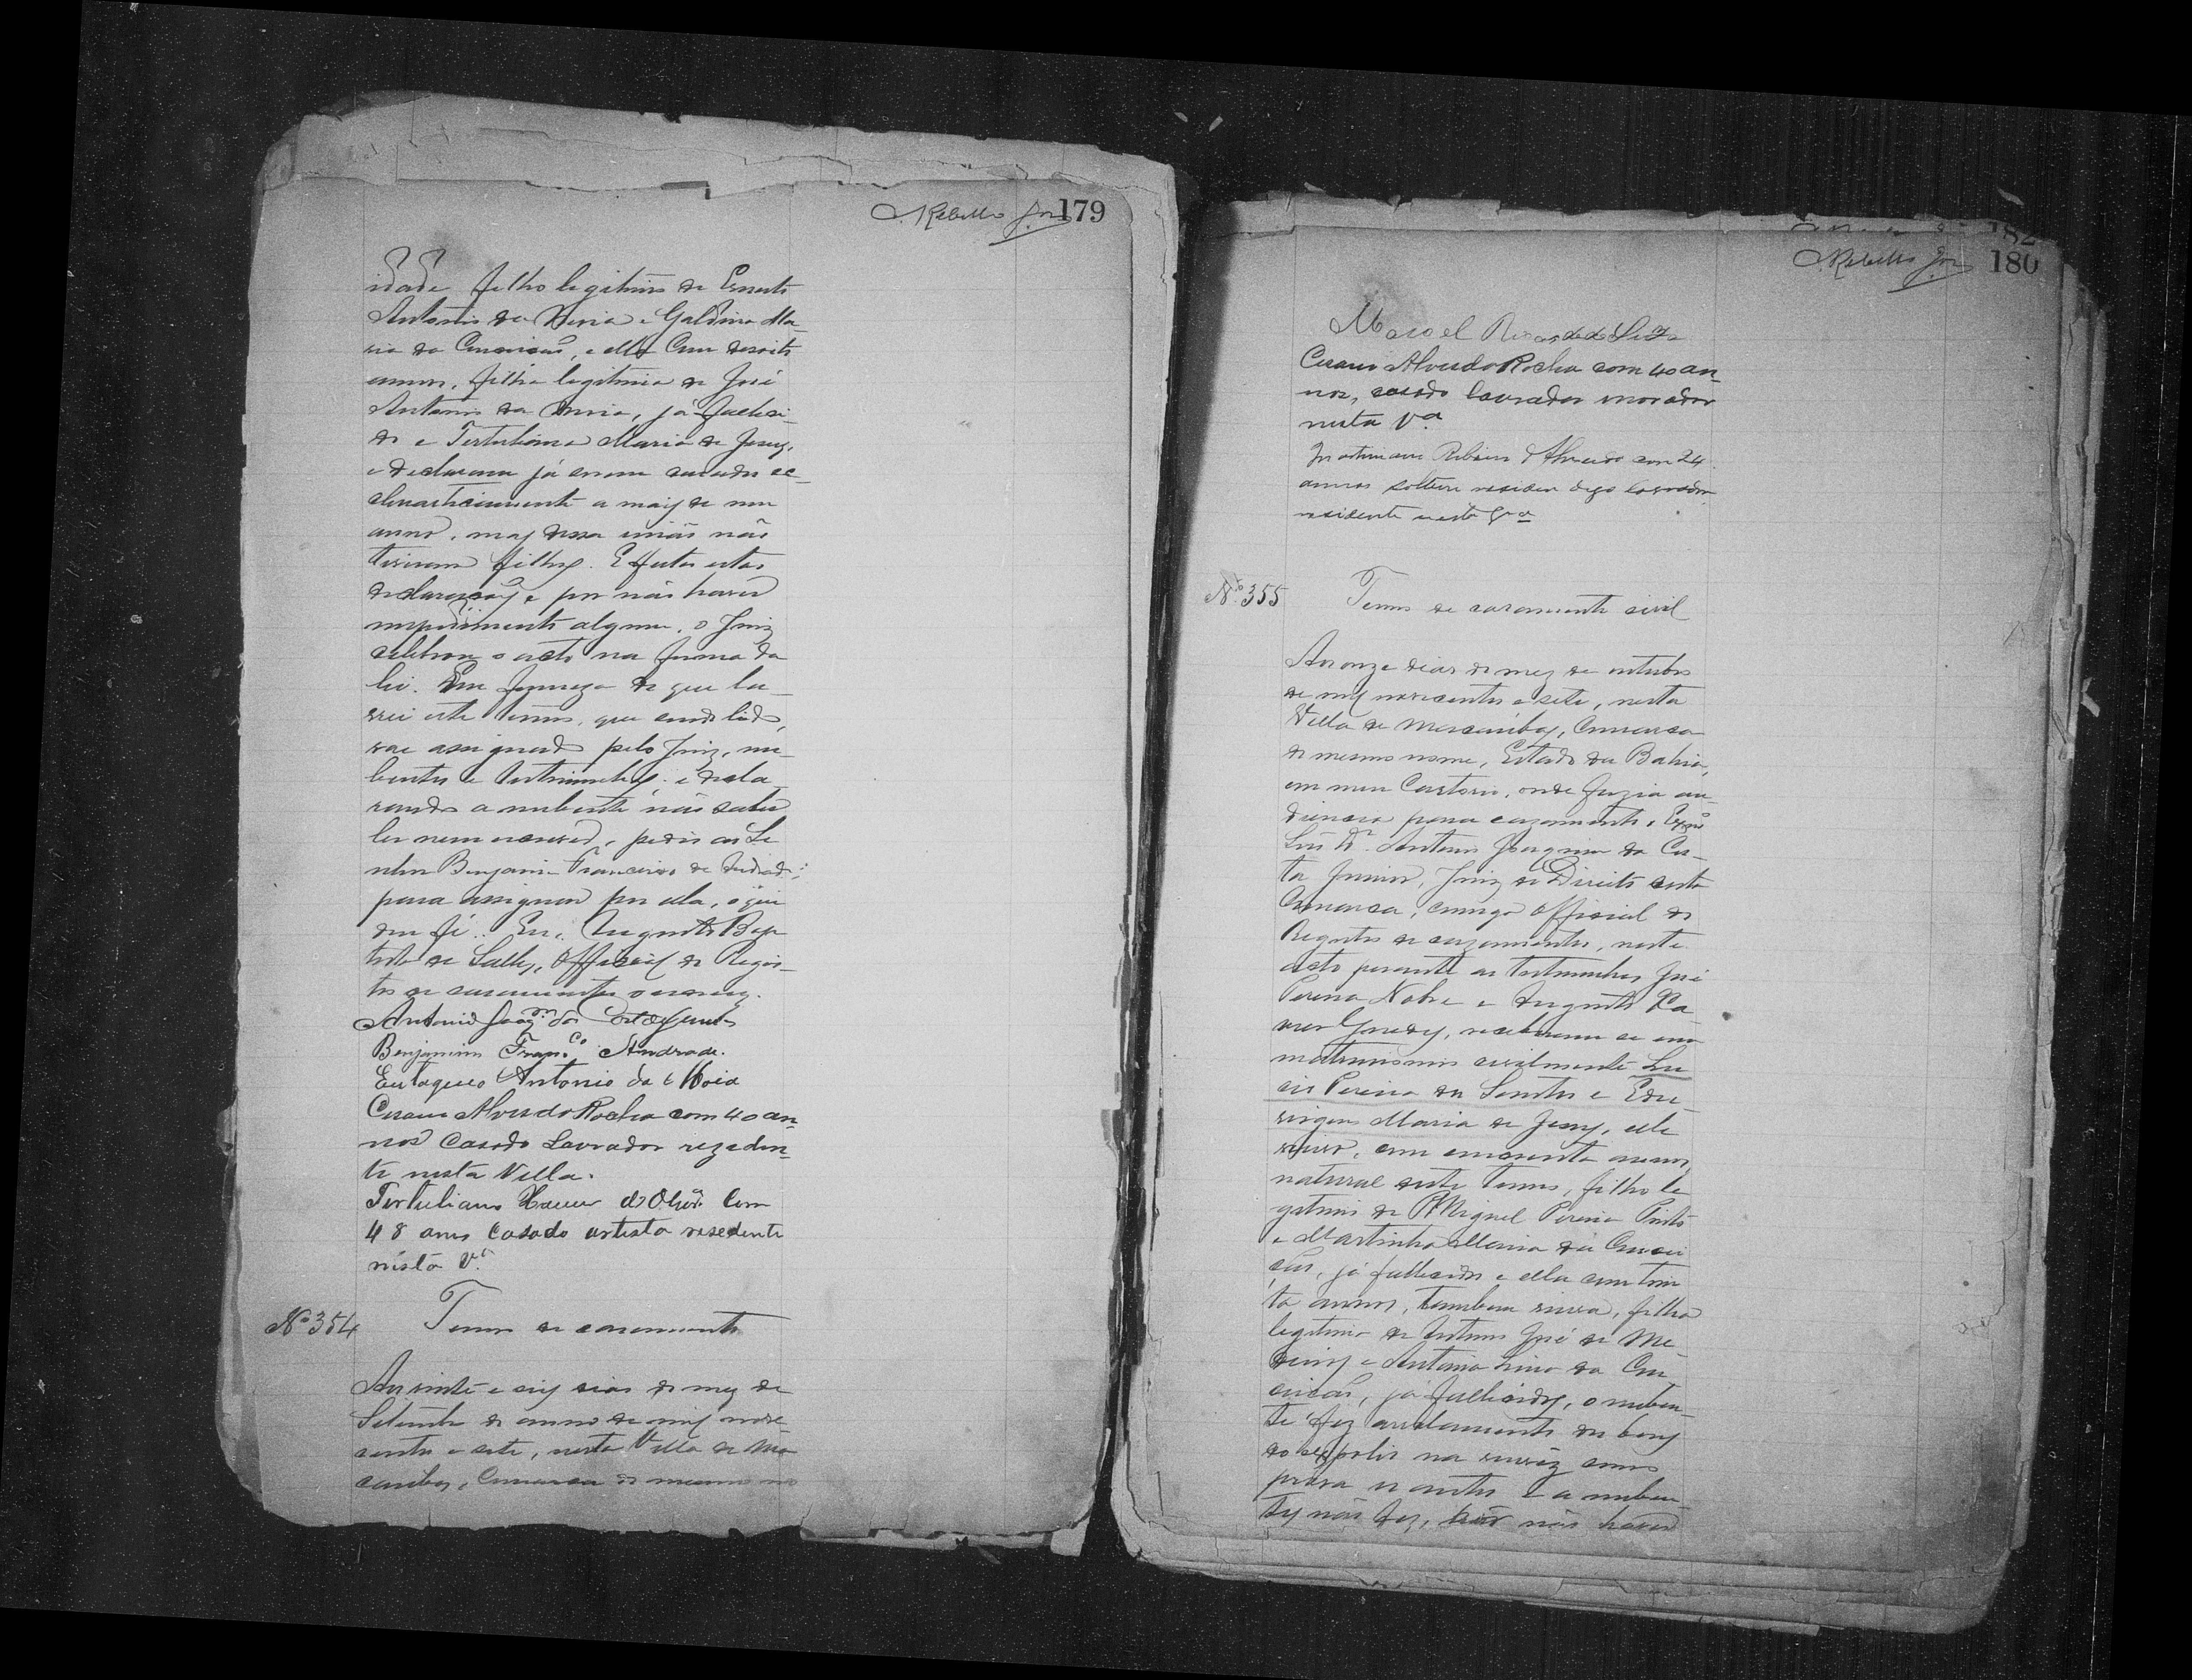 Rebello Jor 179
idade filho legitimo de Ernesto
Antonio da Maia e Galdina Ma-
ria da Conceição, e ella com desoito
annos, filha legitima de José
Antonio da Maia, já falleci-
do e Tertuliana Maria de Jesus,
e declararam já eram casados ec-
clesiasticamente a mais de um
anno, mas dessa união não
tiveram filhos. E feitas estas
declarações e por não haver
impedimento algum, o Juiz
celebrou o acto na forma da
lei. Em firmeza do que la-
vrei este termo, que sendo lido,
vae assignado pelo Juiz, nu-
bentes e testemunhas, e decla
rando a nubente não saber
ler nem escrever, pediu ao Se
nhor Benjamin Francisco de Andrade
para assignar por ella, o que
dou fé. Eu, Augusto Bap
tista de Salles, Official do Regis-
tro de casamentos o escrevy.
Antonio Joaqm da Costa Junior
Benjamim Franco Andrade.
Eustaqueo Antonio da Maia
Cesario Alves da Rocha com 40 an-
nos Casado Lavrador rezeden-
te nesta Villa.
Tertuliano Xavier d'Olivrª com
48 anos Casado artista resedente
nésta Vª
Nº 354 Termo de casamento
Aos vinte e seis dias do mez de
Setembro do anno de mil nove
centos e sete, nesta Villa de Ma
caubas, Comarca do mesmo no
182
Rebello Jor 180
Manoel
Cesario Alves da Rocha com 40 an-
nos, casado lavrador morador
nesta Vª
Ribeiro d'Almeida com 24
annos solteiro digo lavrador
residente nesta
Nº 355 Termo de casamento civil
Aos onze dias do mez de outubro
de mil novecentos e sete, nesta
Villa de Macaubas, Comarca
do mesmo nome, Estado da Bahia,
em meu Cartorio, onde fazia au-
diencia para cazamento o Exmo
Snr Dr Antonio Joaquim da Cos-
ta Junior, Juiz de Direito desta
Comarca, comigo official do
Registro de cazamentos, neste
acto perante as testemunhas José
Pereira Nobre e Augusto Xa-
vier Guedes, receberam se em
matrimonio civilmente Lu
cio Pereira dos Santos e Edu
virgens Maria de Jesus, elle
viuvo, com cincoenta annos,
natural deste termo, filho le
gitimo de Miguel Pereira Pinto
e Martinha Maria da Concei
ção, já fallecidos e ella com trin
ta annos, tambem viuva, filha
legitima de Antonio José de Me
deiros e Antonia Lina da Con
ceição, já fallecidos, o nuben-
te fez arrolamento dos bens
do espolio na viuvez como
prova os autos e a nuben-
te não fez, por não haver